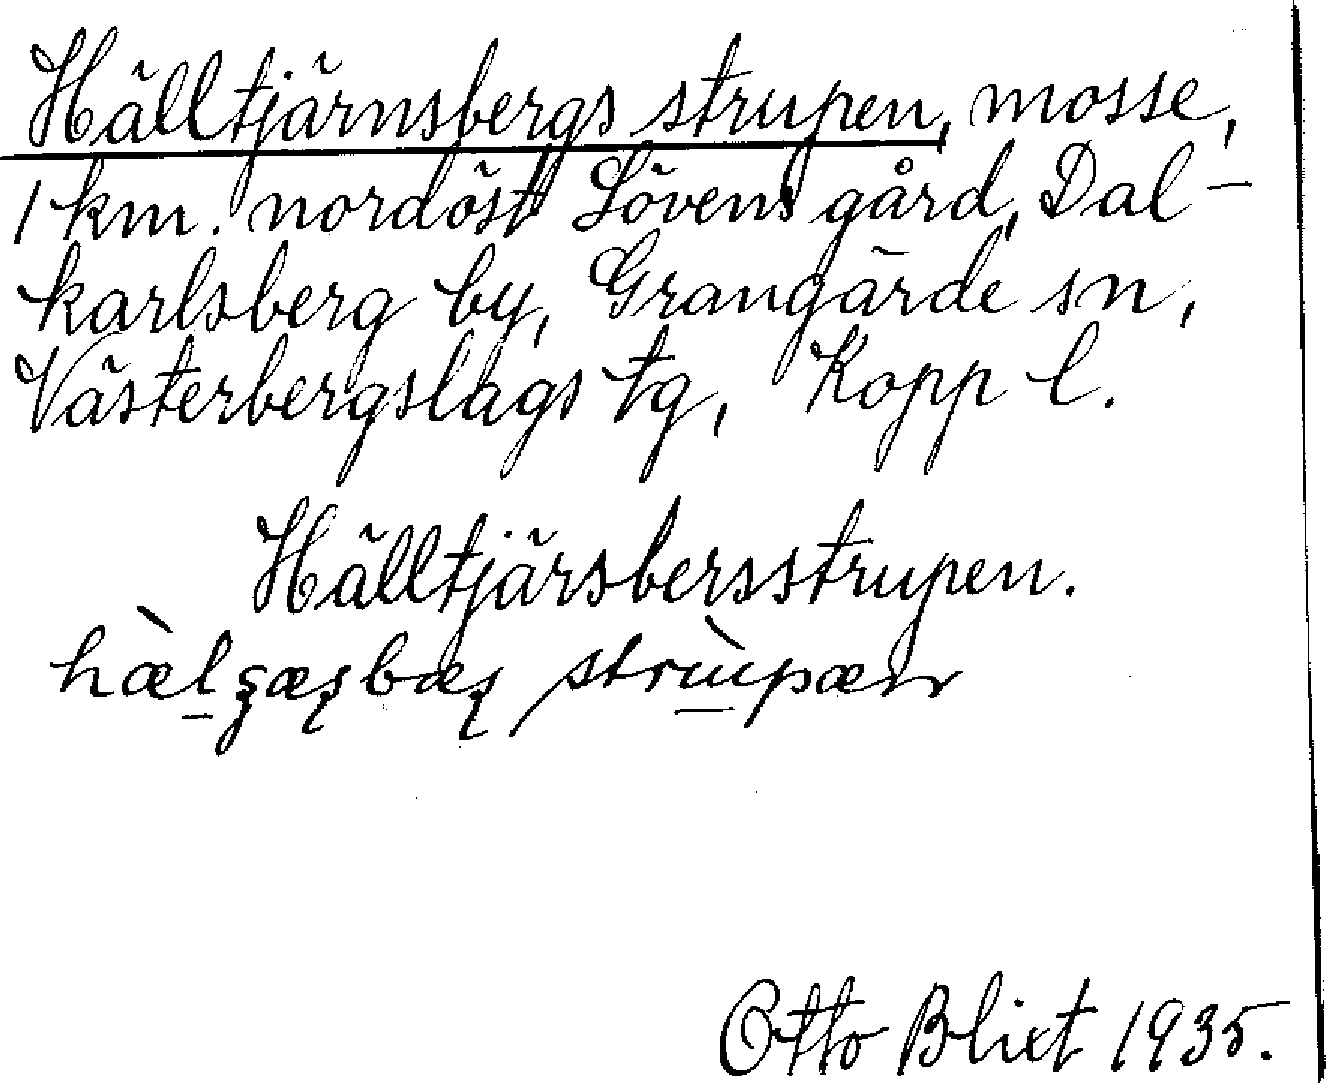 Hälltjärnsbergs strupen, mosse,
1 km. nordöst Lövens gård, Dal-
karlsberg by, Grangärde sn,
Västerbergslags tg, Kopp l.
Hälltjärsbersstrupen.
Otto Blixt 1935.